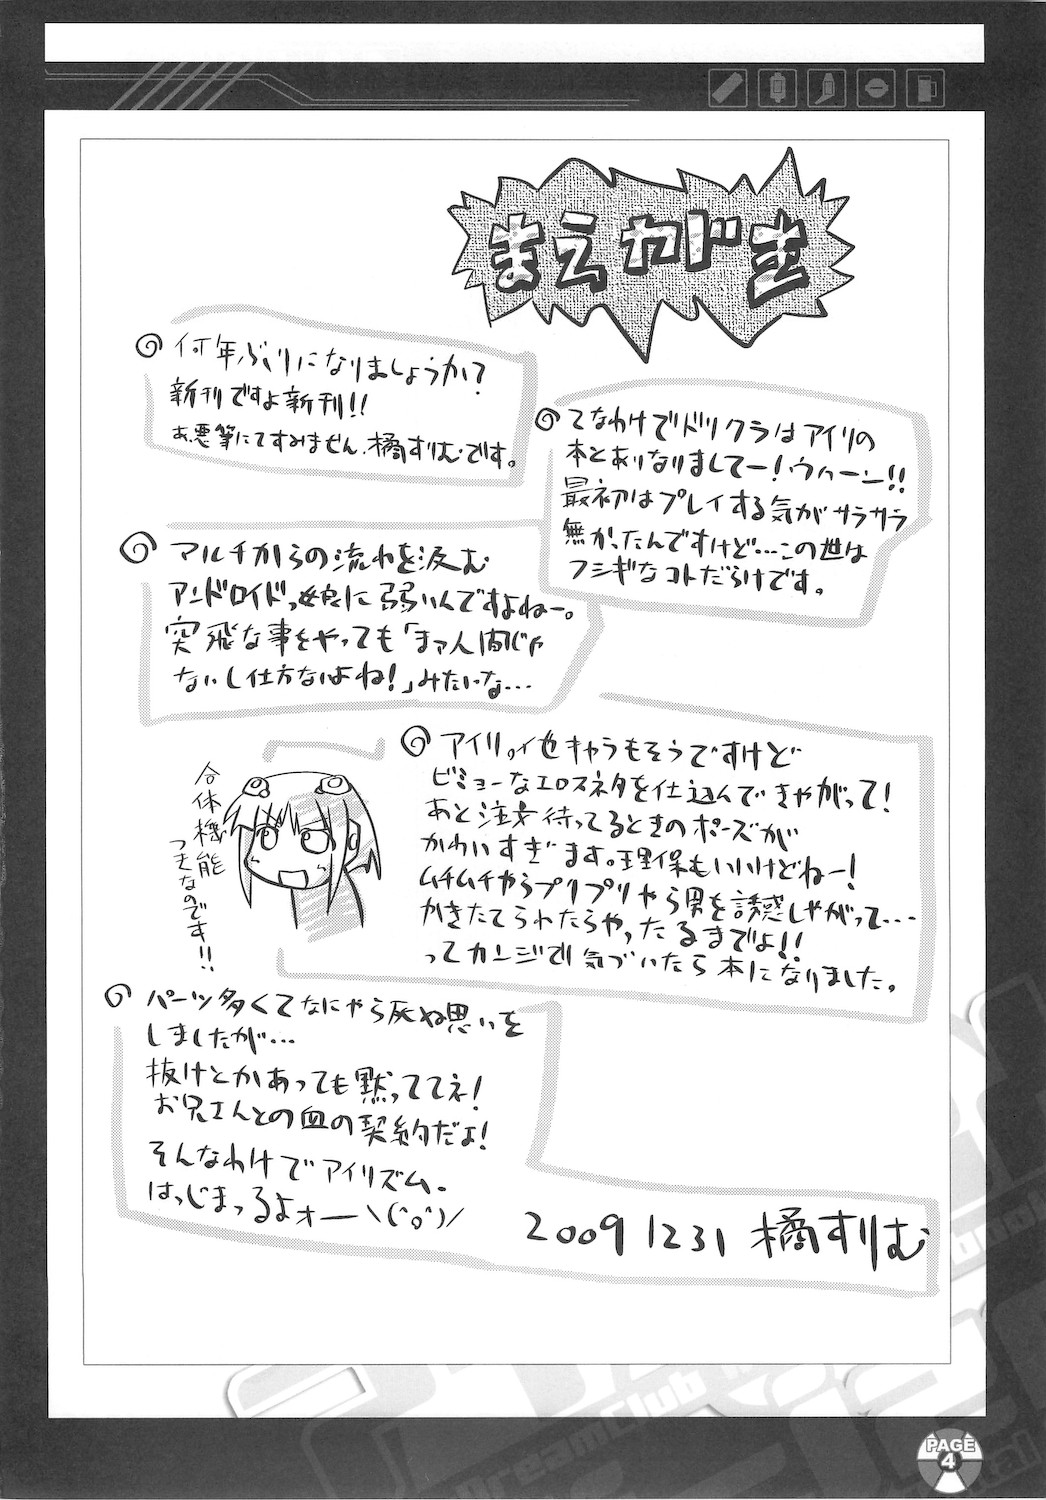 まえがき
何年ぶりになりましょうか?
新刊ですよ新刊!!
あ、悪筆にてすみません、橘すりむです。
てなわけでドリクラはアイリの
本とありなりましてー!ウゥーン!!
最初はプレイする気がサラサラ
無かったんですけど…この世は
フシギなコトだらけです。
マルチからの流れを汲む
アンドロイドっ娘に弱いんですよねー。
突飛な事をやっても「まァ人間じゃ
ないし仕方ないよね!」みたいな…
アイリ他キャラもそうですけど
ビミョーなエロスネタを仕込んできやがって!
あと注文待ってるときのポーズが
かわいすぎます。理保もいいけどねー!
ムチムチやらプリプリやら男を誘惑しやがって…
かきたてられたらやったるまでよ!!
ってカンジで気づいたら本になりました。
合体機能
つきなのです!!
パーツ多くてなにやら死ぬ思いを
しましたが…
抜けとかあっても黙っててネ!
お兄さんとの血の契約だよ!
そんなわけでアイリズム、
はっじまっるよォー\(゜o゜)/
2009 1231 橘すりむ
PAGE
4